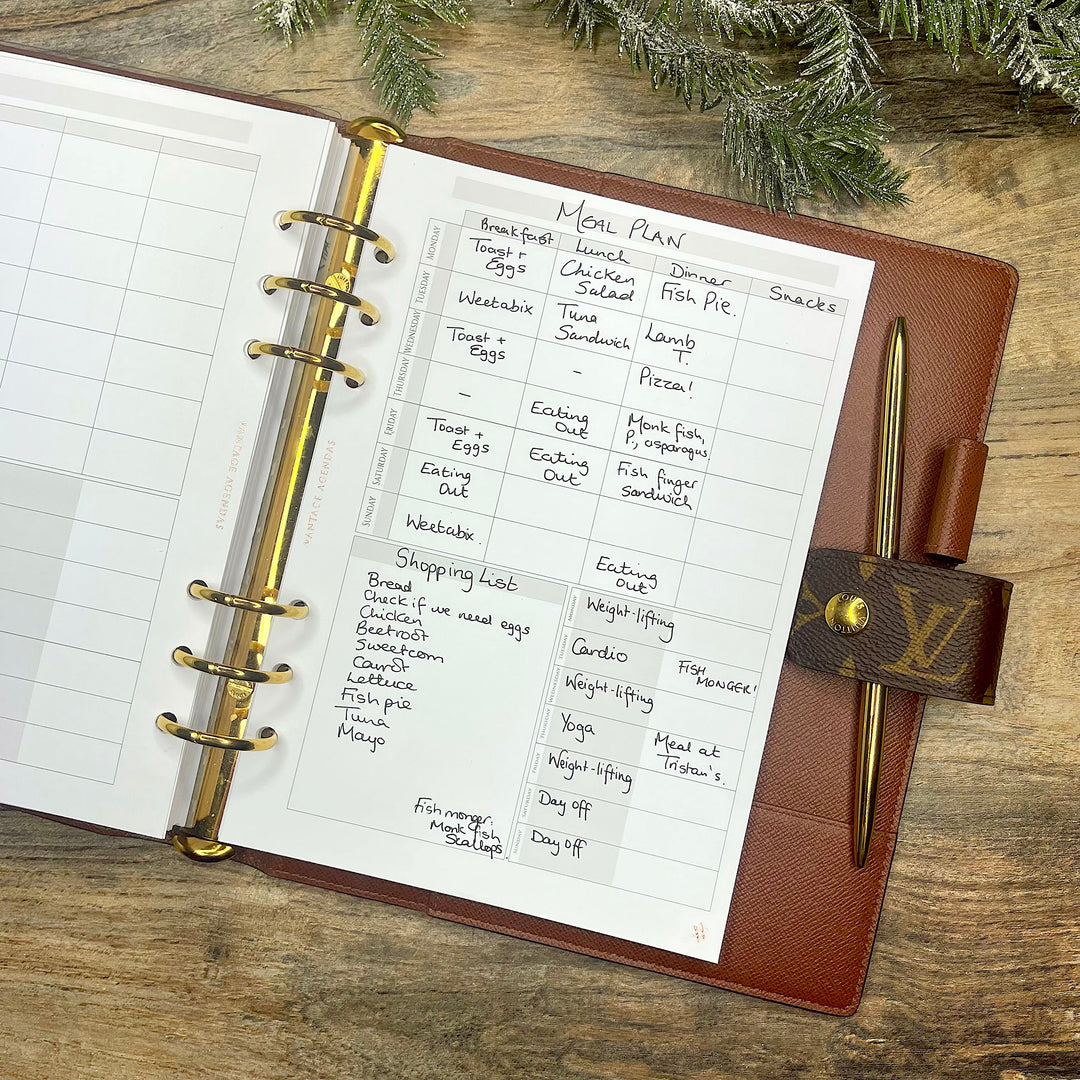 MEAL PLAN
Breakfast Lunch Dinner Snacks
MONDAY
Toast + Eggs
Chicken Salad
Fish Pie.
TUESDAY
Weetabix
Tuna Sandwich
Lamb T.
WEDNESDAY
Toast + Eggs
-
Pizza!
THURSDAY
-
Eating Out
Monk fish, P., asparagus
FRIDAY
Toast + Eggs
Eating Out
Fish finger Sandwich
SATURDAY
Eating Out
SUNDAY
Weetabix.
Eating out
Shopping List
Bread
Check if we need eggs
Chicken
Beetroot
Sweetcorn
Carrot
Lettuce
Fish pie
Tuna
Mayo
Fishmonger:
Monk fish
Scallops
MONDAY
Weight-lifting
TUESDAY
Cardio
FISH
MONGER!
WEDNESDAY
Weight-lifting
THURSDAY
Yoga
Meal at
Tristan's.
FRIDAY
Weight-lifting
SATURDAY
Day off
SUNDAY
Day off
VANTAGE AGENDAS
VANTAGE AGENDAS
LOUIS
VUITTON
LV